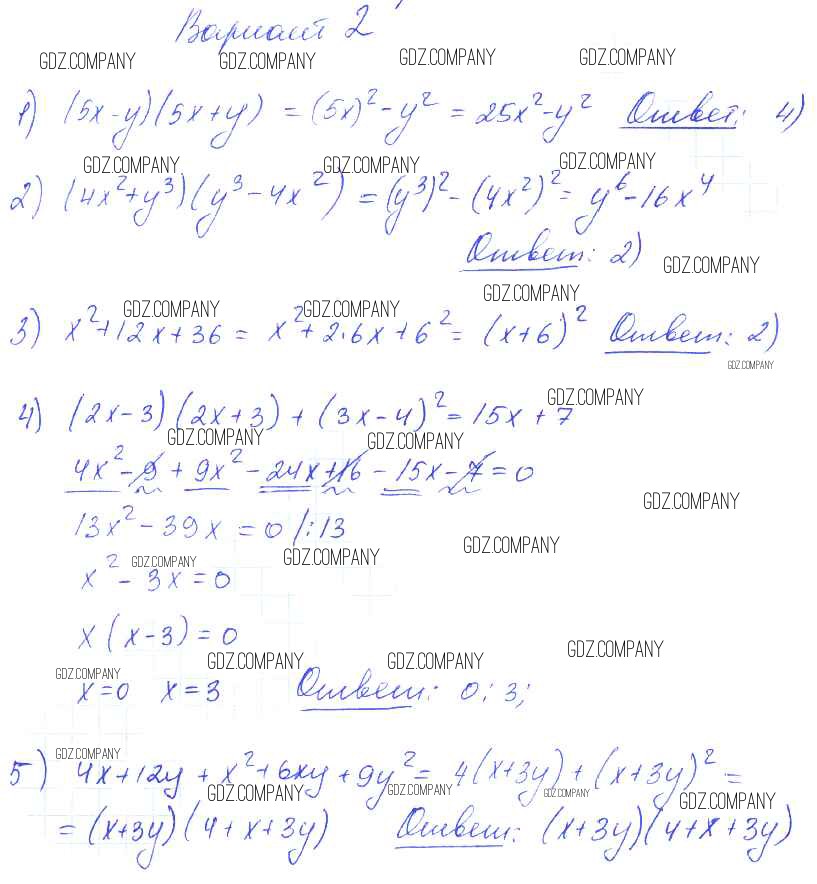 Вариант 2
GDZ.COMPANY GDZ.COMPANY GDZ.COMPANY GDZ.COMPANY
1) (5x-y)(5x+y) = (5x)²-y² = 25x²-y² Ответ: 4)
GDZ.COMPANY GDZ.COMPANY GDZ.COMPANY
2) (4x²+y³)(y³-4x²) = (y³)²-(4x²)² = y⁶-16x⁴
Ответ: 2)
GDZ.COMPANY
GDZ.COMPANY GDZ.COMPANY GDZ.COMPANY
3) x²+12x+36 = x²+2·6x+6² = (x+6)² Ответ: 2)
GDZ.COMPANY
GDZ.COMPANY
4) (2x-3)(2x+3)+(3x-4)² = 15x+7
GDZ.COMPANY GDZ.COMPANY
4x²-9+9x²-24x+16-15x-7=0
GDZ.COMPANY
13x²-39x=0 /:13
GDZ.COMPANY GDZ.COMPANY GDZ.COMPANY
x²-3x=0
x(x-3)=0
GDZ.COMPANY GDZ.COMPANY GDZ.COMPANY
GDZ.COMPANY
x=0 x=3 Ответ: 0; 3;
GDZ.COMPANY
5) 4x+12y+x²+6xy+9y² = 4(x+3y)+(x+3y)² =
GDZ.COMPANY GDZ.COMPANY GDZ.COMPANY GDZ.COMPANY
= (x+3y)(4+x+3y) Ответ: (x+3y)(4+x+3y)